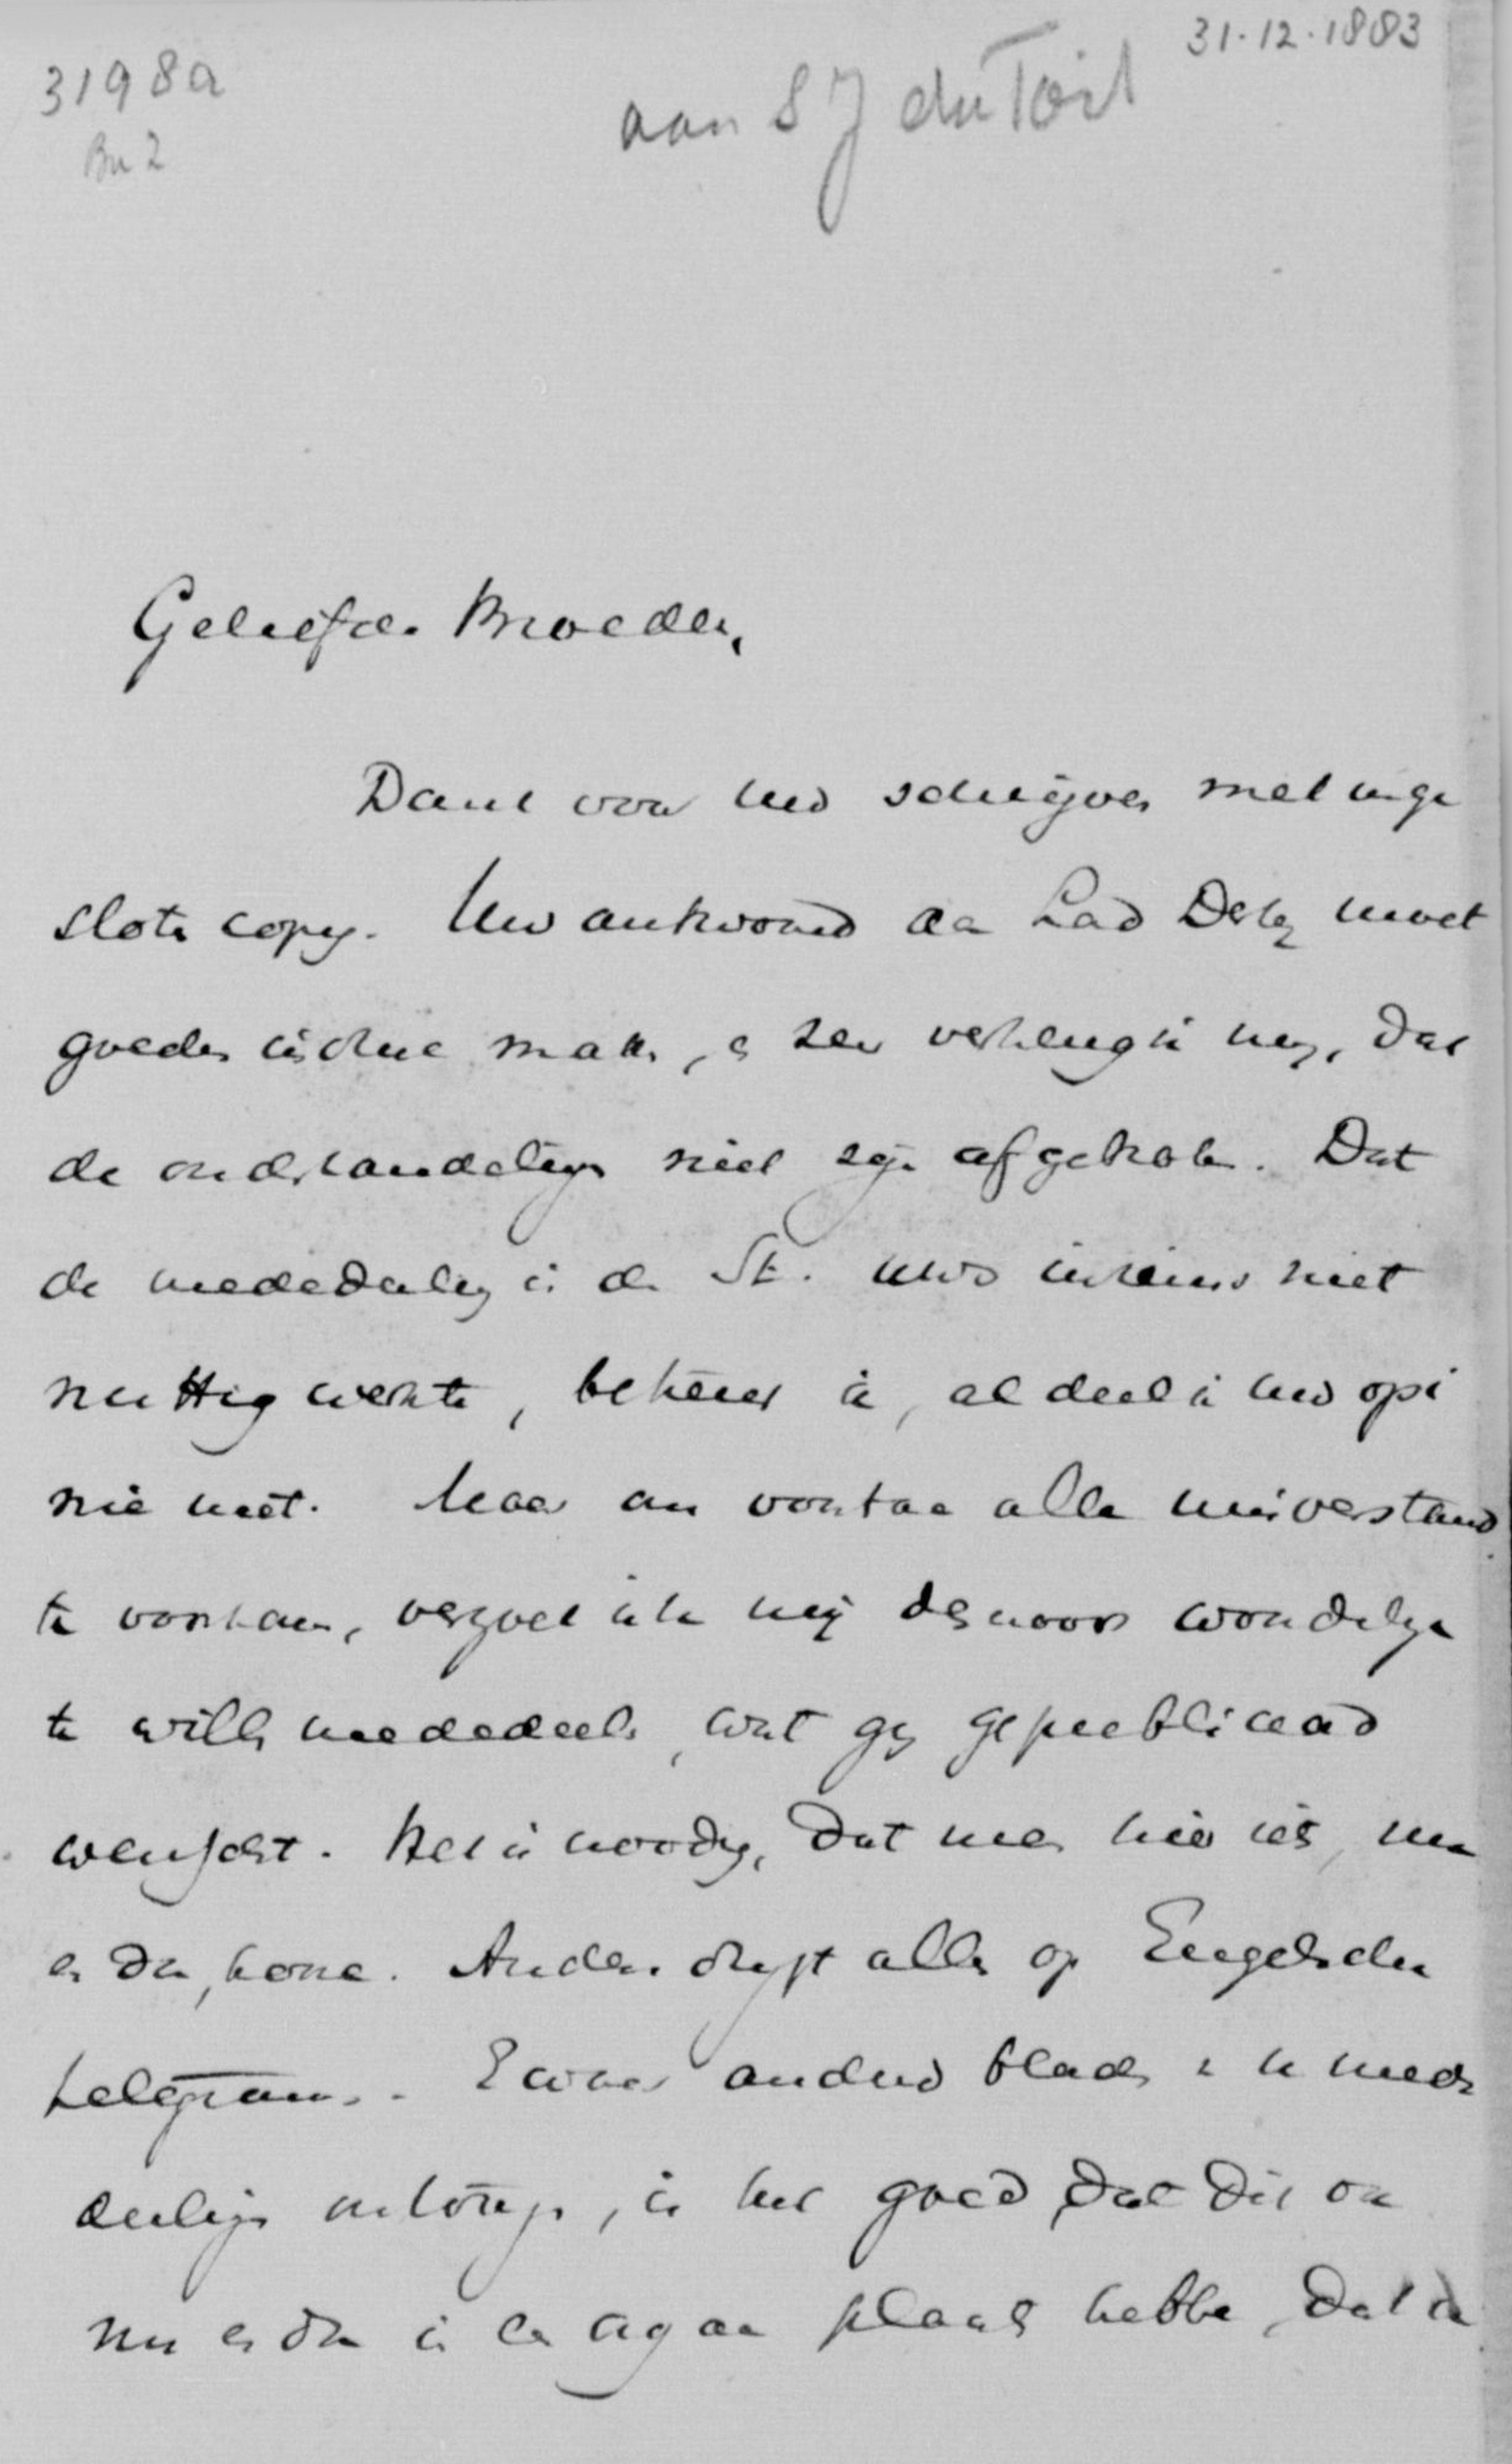 31.12.1883
3198a
Bu 2
aan S J du Toit
Geliefde Broeder,
Dank voor uw schrijven met inge
sloten copy. Uw antwoord aan Lord Derby moet
goeden indruk maken, en zeer verheugt mij, dat
de onderhandelingen niet zijn afgebroken. Dat
de mededeeling in de St. uws inziens niet
nuttig werkte, betreur ik, al deel ik uw opi
nie niet. Maar om voortaan alle misverstand
te voorkomen, verzoek ik mij des noods woordelijk
te willen mededeelen, wat gij gepubliceerd
wenscht. Het is noodig, dat men hier iets, nu
en dan, hoore. Anders drijft alles op Engelsche
telegrammen. Zoowel anderen bladen mede
deelingen, is het goed, dat die ook
nu en dan in een orgaan plaats hebben, dat de